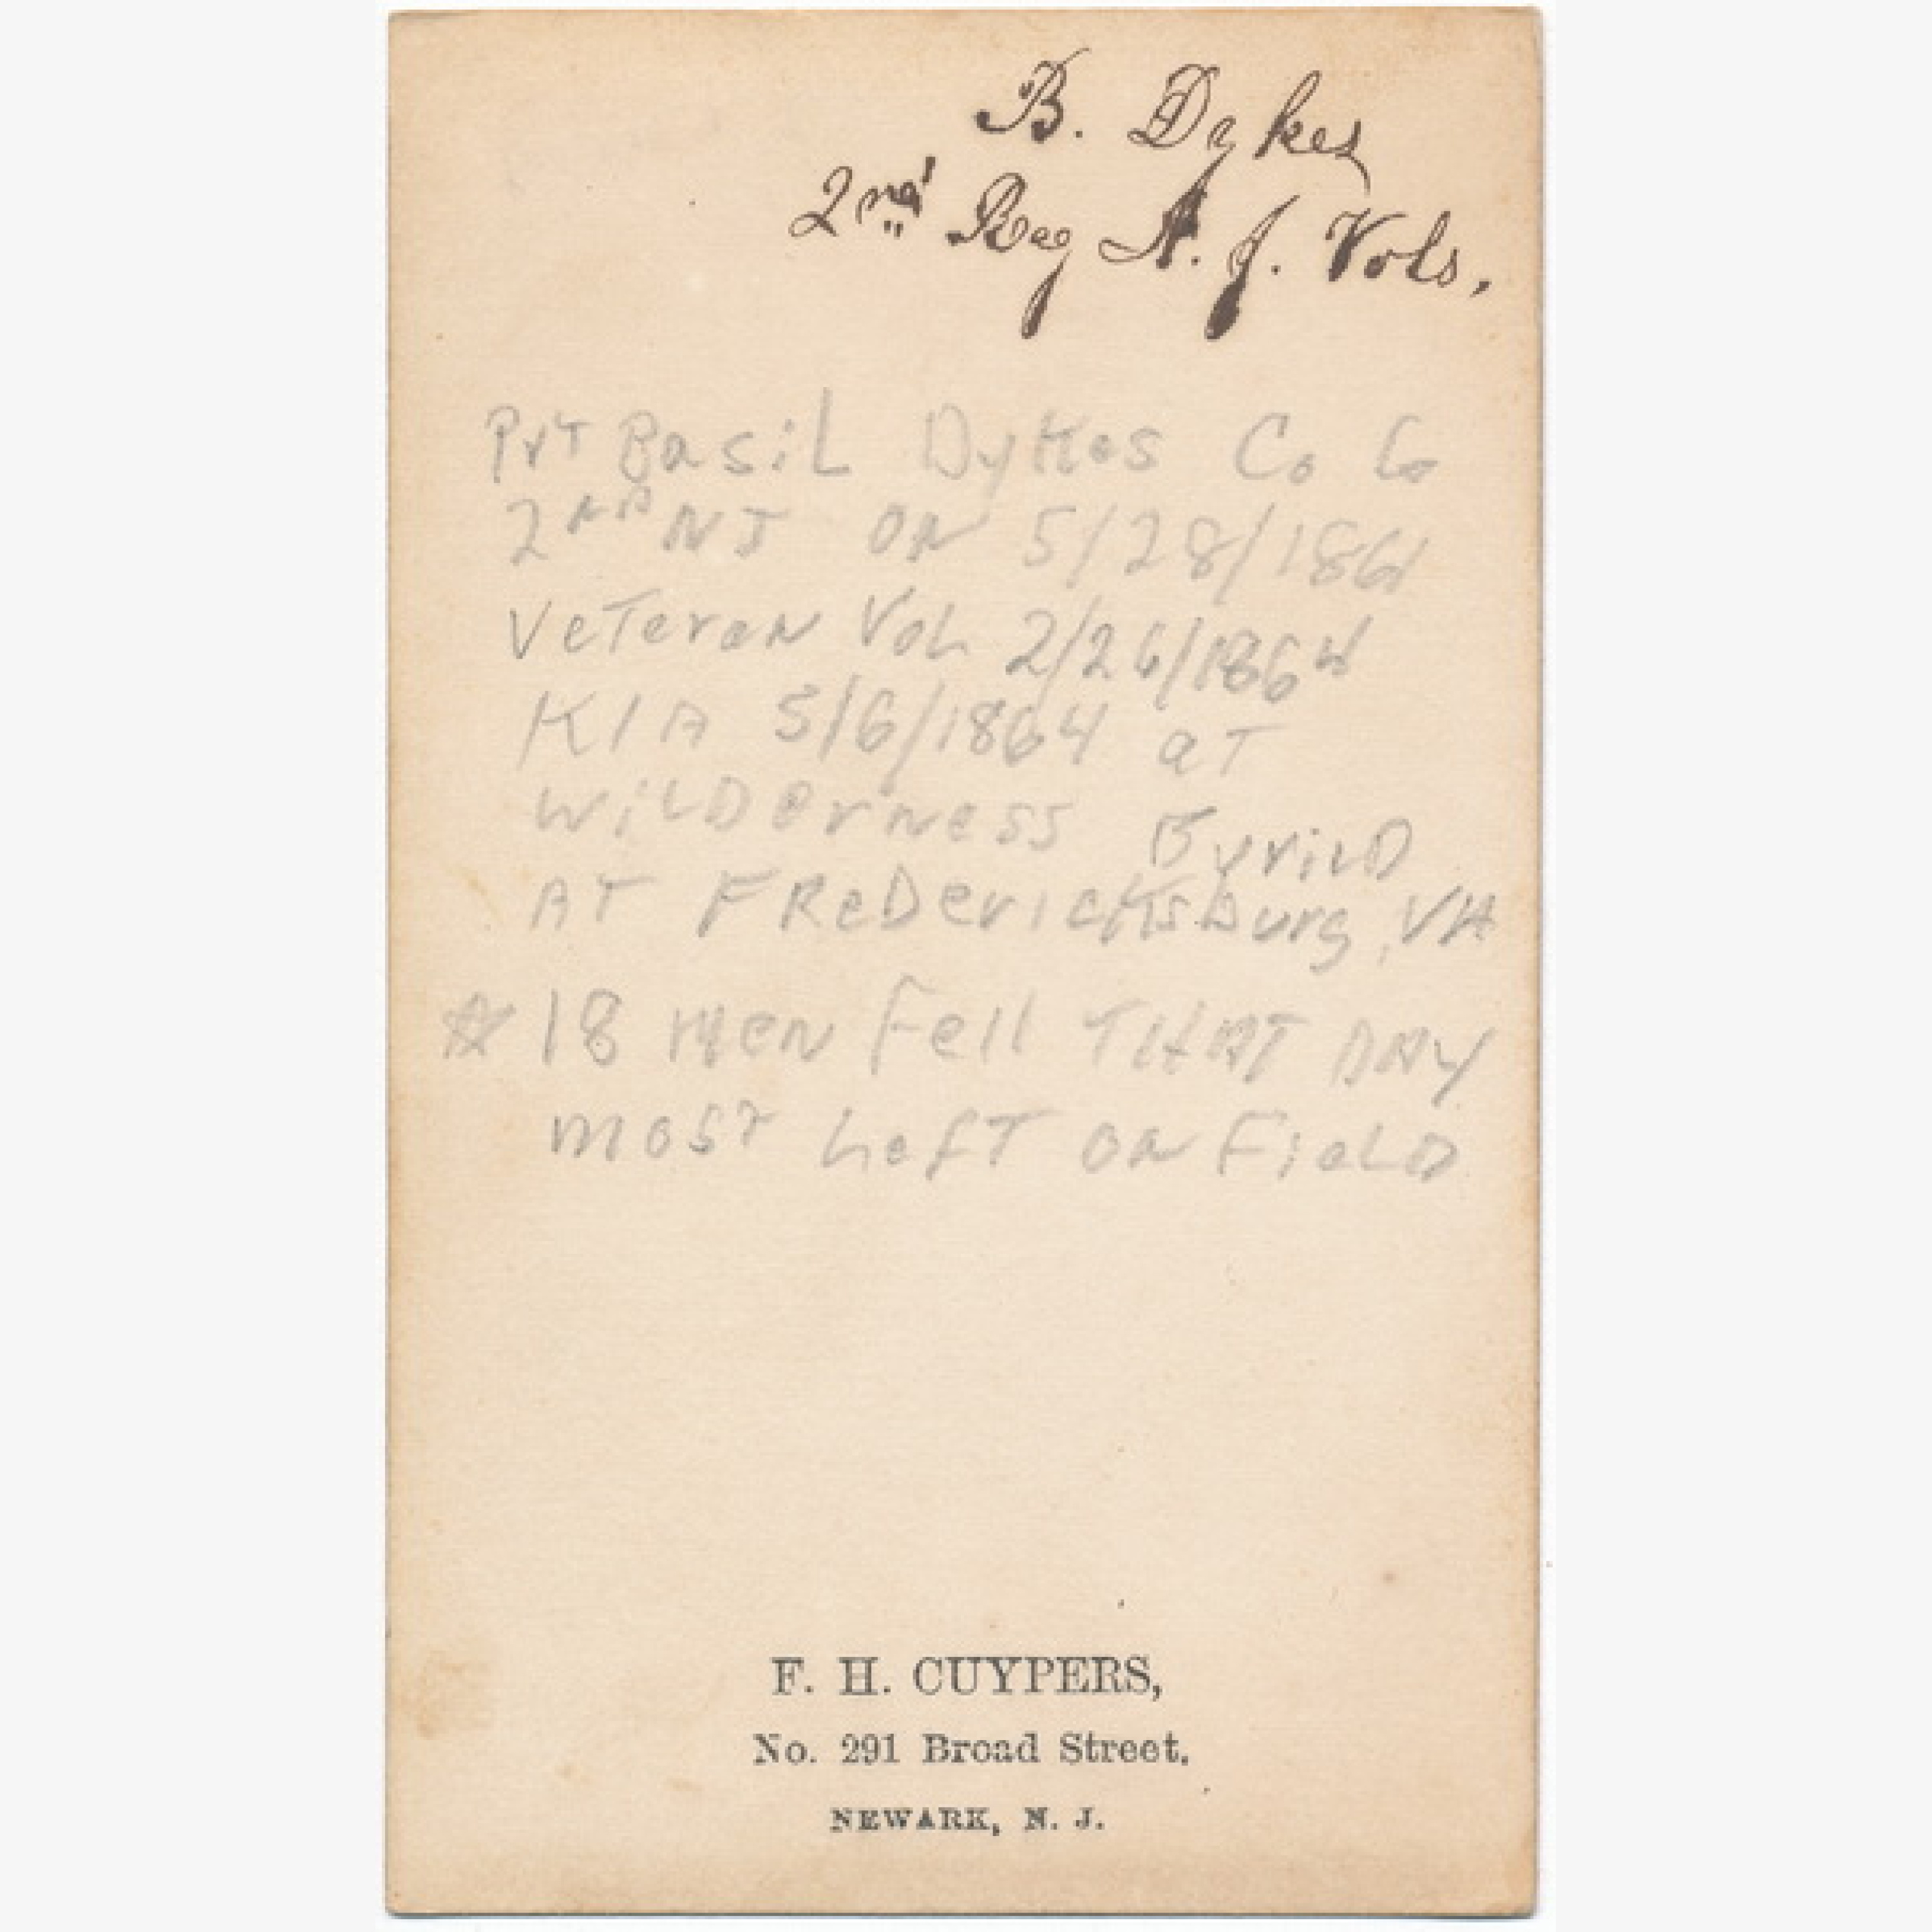 B. Dykes
2nd Reg N. J. Vols.
Pvt Basil Dykes Co G
2nd NJ on 5/28/1861
Veteran Vol 2/26/1864
KIA 5/6/1864 at
Wilderness Buried
AT Fredericksburg, VA
☆ 18 Men Fell THAT DAY
most Left on Field
F. H. CUYPERS,
No. 291 Broad Street,
NEWARK, N. J.